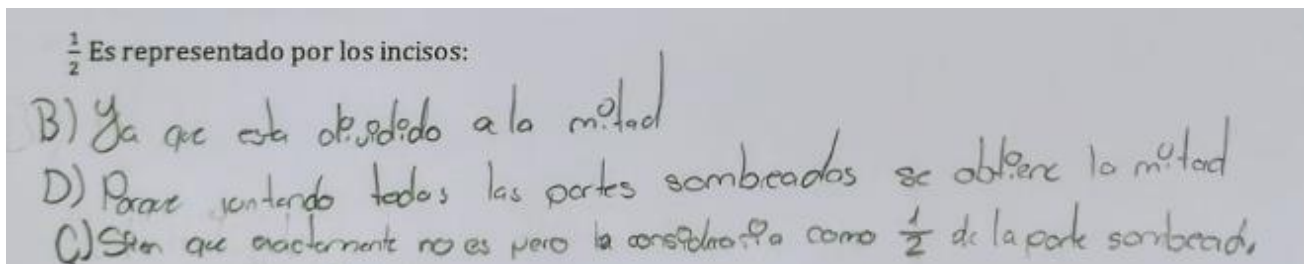 1/2 Es representado por los incisos:
B) Ya que esta dividido a la mitad
D) Porque juntando todas las partes sombeadas se obtiene la mitad
C) Sien que exactamente no es pero la consideraria como 1/2 de la parte sombead.